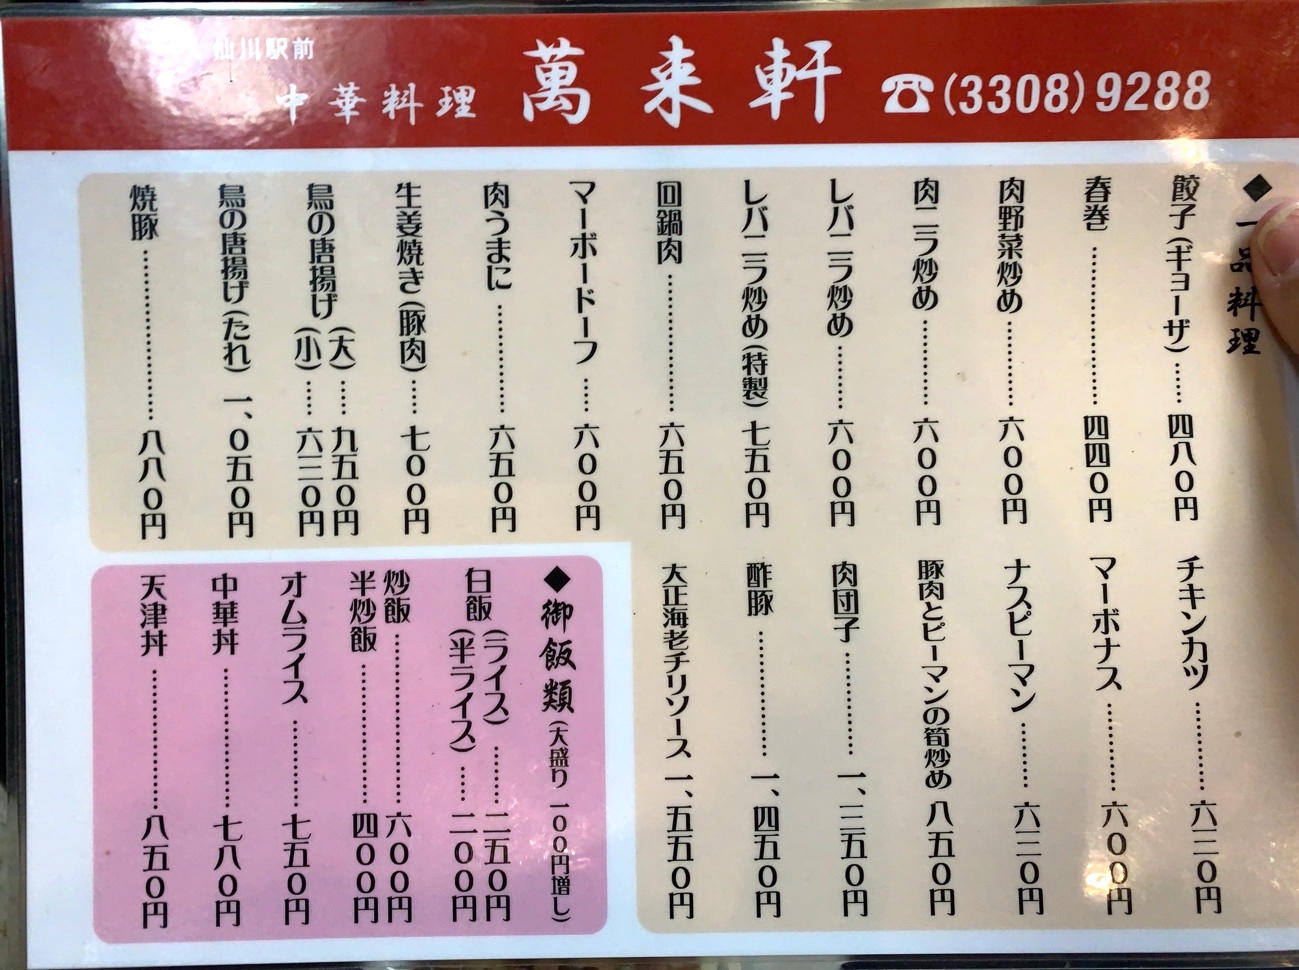 仙川駅前
中華料理 萬来軒 ☎(3308)9288
◆一品料理
餃子(ギョーザ)……四八0円
春巻……………四四0円
肉野菜炒め………六00円
肉ニラ炒め………六00円
レバニラ炒め……六00円
レバニラ炒め(特製)七五0円
回鍋肉……………六五0円
マーボードーフ……六00円
肉うまに…………六五0円
生姜焼き(豚肉)……七00円
鳥の唐揚げ(大)……九五0円
(小)……六二0円
鳥の唐揚げ(たれ)一、0五0円
焼豚………………八八0円
チキンカツ………六二0円
マーボナス………六00円
ナスピーマン……六二0円
豚肉とピーマンの筍炒め 八五0円
肉団子…………一、三五0円
酢豚……………一、四五0円
大正海老チリソース 一、五五0円
◆御飯類(大盛り一00円増し)
白飯(ライス)……二五0円
(半ライス)……二00円
炒飯……………六00円
半炒飯…………四00円
オムライス………七五0円
中華丼…………七八0円
天津丼…………八五0円